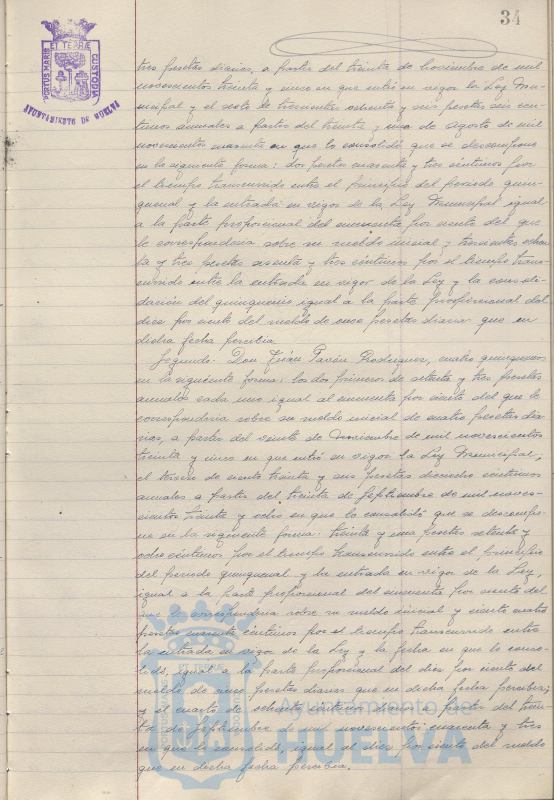 34
PORTUS MARIS ET TERRÆ CUSTODIA
AYUNTAMIENTO DE HUELVA
tres pesetas diarias, a partir del treinta de noviembre de mil
novecientos treinta y cinco en que entró en vigor la Ley Mu-
nicipal y el resto de trescientas ochenta y seis pesetas seis cén-
timos anuales a partir del treinta y uno de agosto de mil
novecientos cuarenta en que lo consolidó que se descompone
en la siguiente forma: dos pesetas cuarenta y tres céntimos por
el tiempo transcurrido entre el principio del periodo quin-
quenal y la entrada en vigor de la Ley Municipal igual
a la parte proporcional del cincuenta por ciento del que
le correspondería sobre su sueldo inicial y trescientas ochen-
ta y tres pesetas sesenta y tres céntimos por el tiempo trans-
currido entre la entrada en vigor de la Ley y la consoli-
dación del quinquenio igual a la parte proporcional del
diez por ciento del sueldo de once pesetas diarias que en
dicha fecha percibía.
Segundo. Don Juan Pavón Rodríguez, cuatro quinquenios
en la siguiente forma: los dos primeros de setenta y tres pesetas
anuales cada uno igual al cincuenta por ciento del que le
correspondería sobre su sueldo inicial de cuatro pesetas dia-
rias, a partir del veinte de Noviembre de mil novecientos
treinta y cinco en que entró en vigor la Ley Municipal,
el tercero de ciento treinta y seis pesetas dieciocho céntimos
anuales a partir del treinta de Septiembre de mil nove-
cientos treinta y ocho en que lo consolidó que se descompo-
ne en la siguiente forma: treinta y una pesetas setenta y
ocho céntimos por el tiempo transcurrido entre el principio
del periodo quinquenal y la entrada en vigor de la Ley,
igual a la parte proporcional del cincuenta por ciento del
que le correspondería sobre su sueldo inicial y ciento cuatro
pesetas cuarenta céntimos por el tiempo transcurrido entre
la entrada en vigor de la Ley y la fecha en que lo conso-
lidó, igual a la parte proporcional del diez por ciento del
sueldo de cinco pesetas diarias que en dicha fecha percibía;
y el cuarto de ochenta céntimos diarios a partir del trein-
ta de Septiembre de mil novecientos cuarenta y tres
en que lo consolidó, igual al diez por ciento del sueldo
que en dicha fecha percibía.
Ayuntamiento de
HUELVA